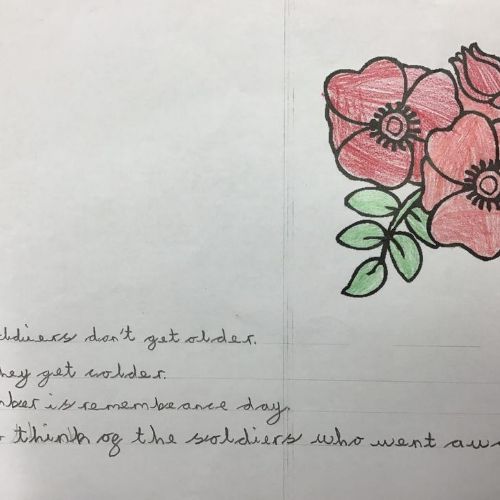 oldiers don't get older.
hey get colder.
mber is remembeance day.
think of the soldiers who went awa